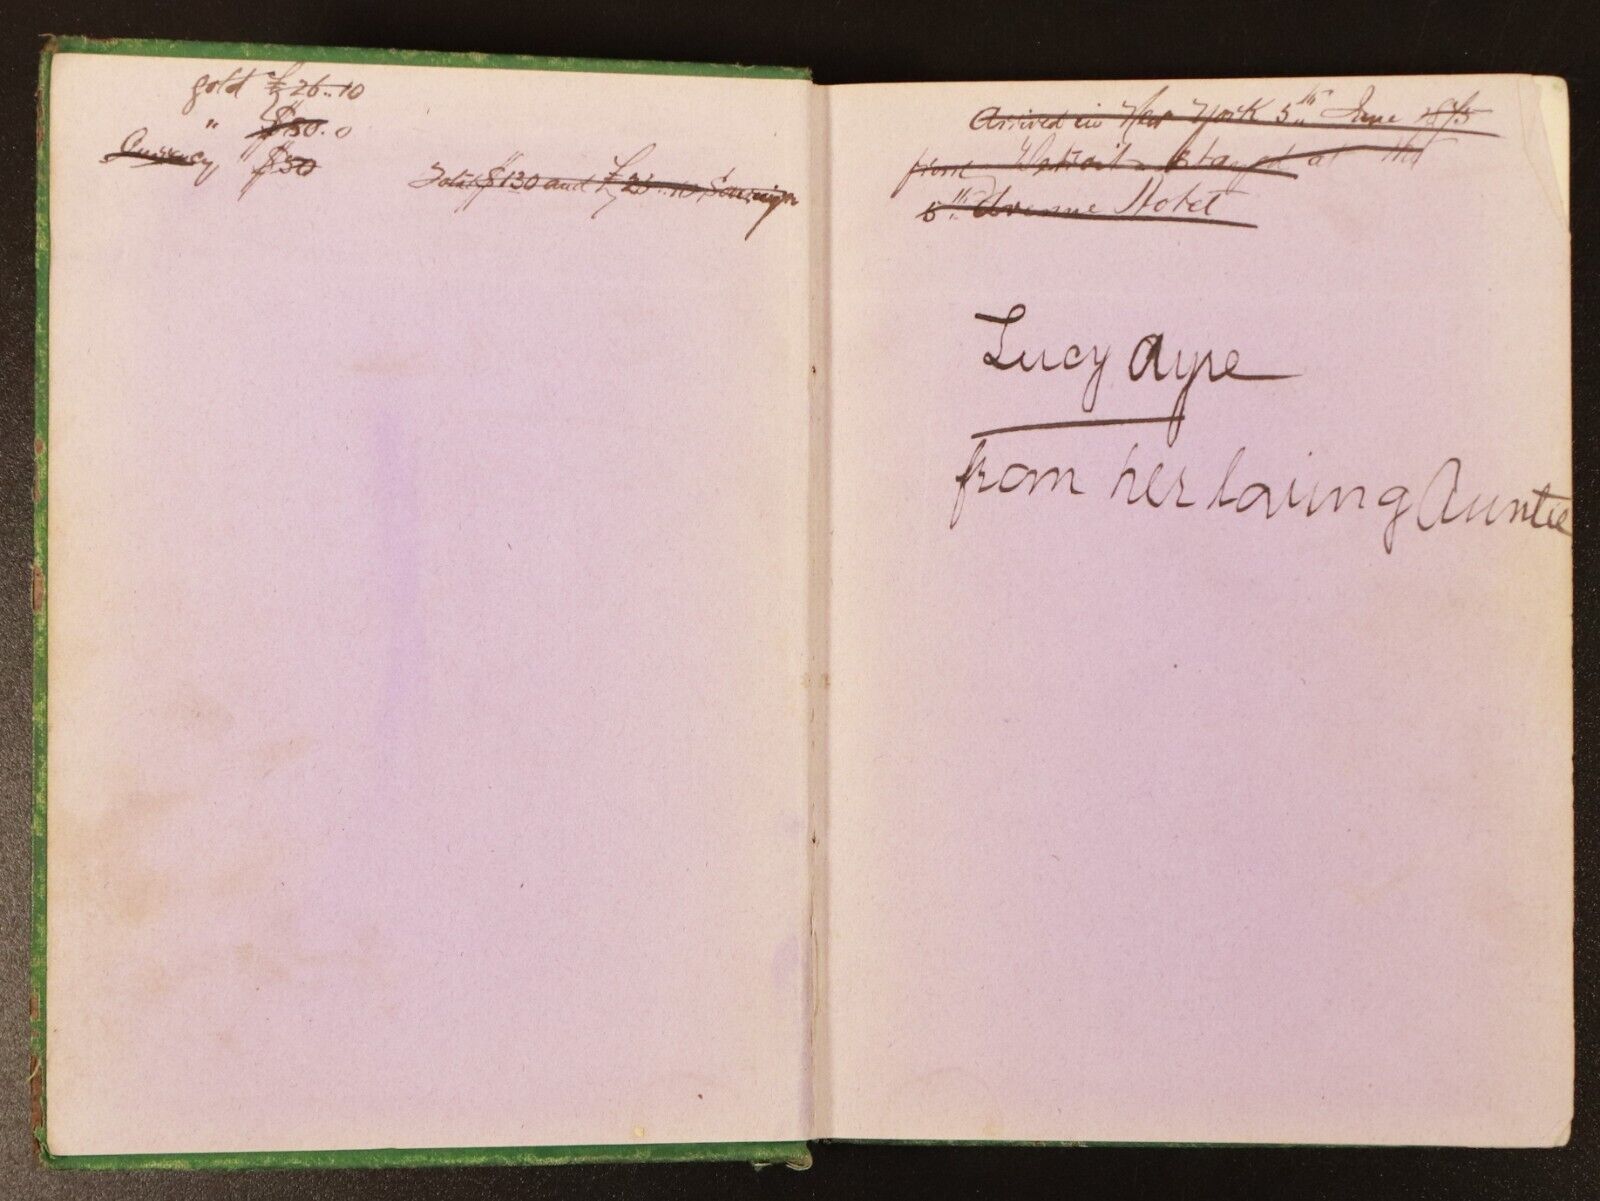 gold £26..10
" $80.0
Currency $50
Total $130 and £ 10 Sovereign
Arrived in New York 5th June 1875
from Detroit Stayed at the
5th Avenue Hotel
Lucy Ayre
from her loving Auntie